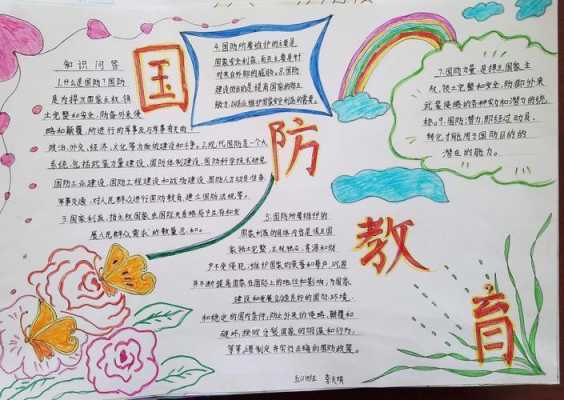 国
防
教
育
知识问答
1.什么是国防?国防
是为捍卫国家主权、领
土完整和安全,防备外来侵
略和颠覆,所进行的军事及与军事有关的
政治、外交、经济、文化等方面的建设和斗争。2.现代国防是一个大
系统,包括武装力量建设、国防体制建设、国防科学技术研究
国防工业建设、国防工程建设和战场建设、国防人力动员准备
对人民群众进行国防教育、建立国防法规等。
3.国家利益,指主权国家在国际关系格局中生存和发
展
4.国防所着维护的主要是
国家安全利益,
对来自外部的威胁。
7.国防力量是捍卫国家主
权、领土完整和安全,防御外来
就是侵略的各种实力和潜力的统
称。8.国防潜力,即经过动员
转化才能用于国防目的的
潜在的能力。
5.国防所着维护的
国家利益的具体内容是领土国
家领土完整、主权独立、资源和财
产不受侵犯,维护国家的荣誉和尊严,
并不断提高国家在国际上的地位和影响,为国家
建设和发展创造良好的国防环境
和稳定的国内条件,防止外来的侵略、颠覆和
破坏,挫败分裂国家的阴谋和行为,
等等,要制定并实行正确的国防政策。